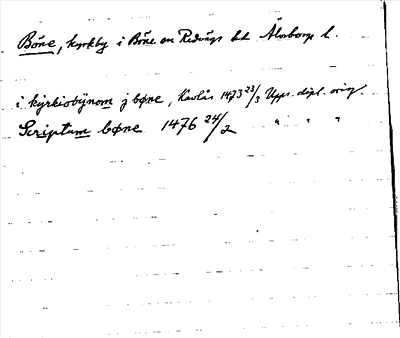 Böne, kyrkby i Böne sn Redvägs hd Älvsborgs l.
i kyrkiobynom j bøne, Kavlås 1473 23/3 Upps. dipl. orig.
Scriptum bøne 1476 24/2 " " "